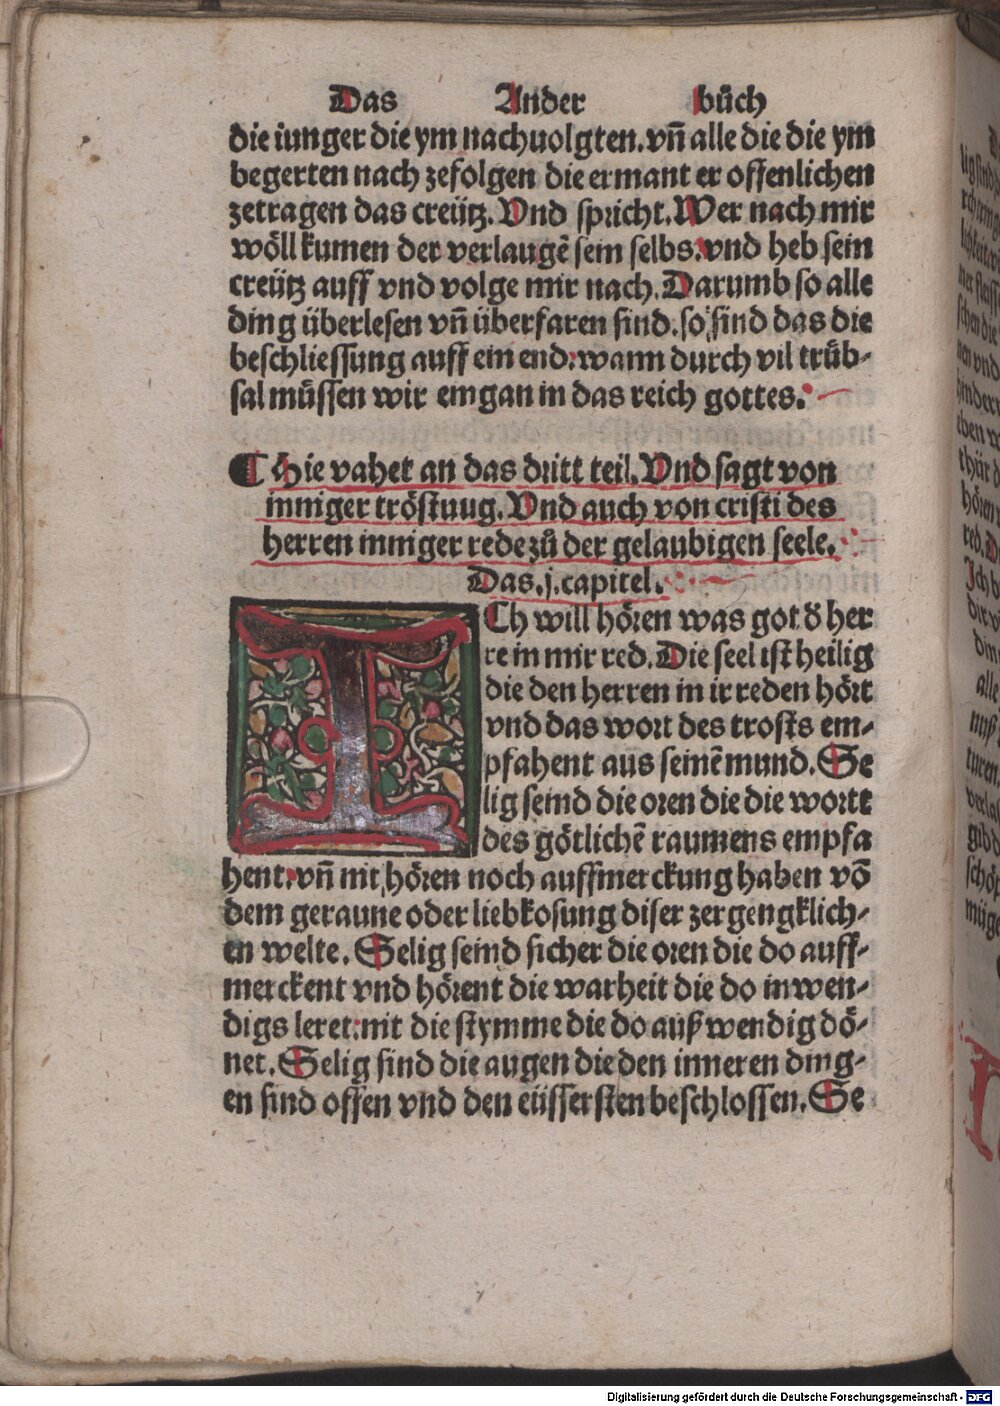 Das Ander bůch
die iunger die ym nachuolgten. vñ alle die die ym
begerten nach zefolgen die ermant er offenlichen
zetragen das creütz. Vnd spricht. Wer nach mir
wöll kumen der verlaugē sein selbs. vnd heb sein
creütz auff vnd volge mir nach. Darumb so alle
ding überlesen vñ überfaren sind. so sind das die
beschliessung auff ein end: wann durch vil trüb-
sal müssen wir eingan in das reich gottes.
¶ Hie vahet an das dritt teil. Vnd sagt von
inniger tröstuug. Vnd auch von cristi des
herren inniger rede zů der gelaubigen seele.
Das .j. capitel.
ICh will hören was got d᷑ her
re in mir red. Die seel ist heilig
die den herren in ir reden hört
vnd das wort des trosts em-
pfahent aus seinē mund. Se
lig seind die oren die die wortt
des götlichē raumens empfa
hent. vñ nit hören noch auffmerckung haben vō
dem geraune oder liebkosung diser zergengklich-
en welte. Selig seind sicher die oren die do auff-
merckent vnd hörent die warheit die do inwen-
digs leret: nit die stymme die do außwendig dö-
net. Selig sind die augen die den inneren ding-
en sind offen vnd den eüssersten beschlossen. Se
Digitalisierung gefördert durch die Deutsche Forschungsgemeinschaft - DFG